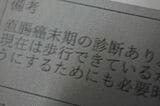 備考
直腸癌末期の診断あり
現在は歩行できている
うにするためにも必要